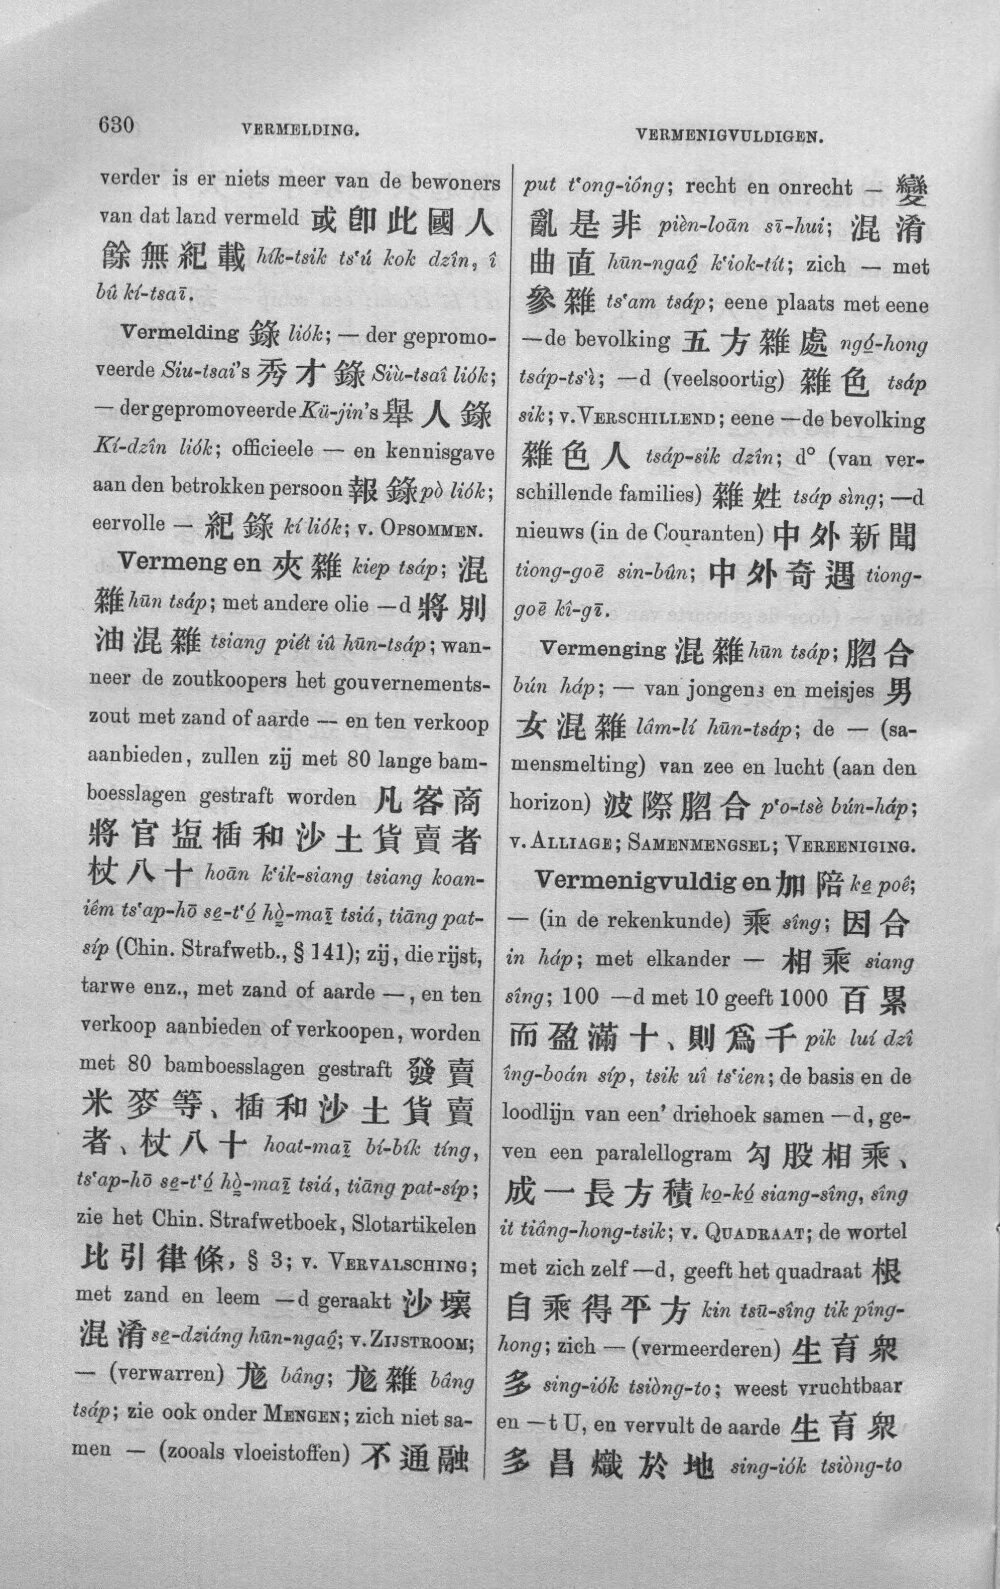 630
VERMELDING.
VERMENIGVULDIGEN.
verder is er niets meer van de bewoners
van dat land vermeld 或卽此國人
餘無紀載 hík-tsik tsʻú kok dzîn, î
bû kí-tsaī.
Vermelding 錄 liók; — der gepromo-
veerde Siu-tsai's 秀才錄 Siù-tsaî liók;
— der gepromoveerde Kü-jin's 舉人錄
Kí-dzîn liók; officieele — en kennisgave
aan den betrokken persoon 報錄 pò liók;
eervolle — 紀錄 kí liók; v. OPSOMMEN.
Vermengen 夾雜 kiep tsáp; 混
雜 hūn tsáp; met andere olie —d 將別
油混雜 tsiang piét iû hūn-tsáp; wan-
neer de zoutkoopers het gouvernements-
zout met zand of aarde — en ten verkoop
aanbieden, zullen zij met 80 lange bam-
boesslagen gestraft worden 凡客商
將官塩插和沙土貨賣者
杖八十 hoān kʻik-siang tsiang koan-
iêm tsʻap-hō se̱-tʻó̱ hò̱-maī tsiá, tiāng pat-
síp (Chin. Strafwetb., § 141); zij, die rijst,
tarwe enz., met zand of aarde —, en ten
verkoop aanbieden of verkoopen, worden
met 80 bamboesslagen gestraft 發賣
米麥等、插和沙土貨賣
者、杖八十 hoat-maī bí-bík tíng,
tsʻap-hō se̱-tʻó̱ hò̱-maī tsiá, tiāng pat-síp;
zie het Chin. Strafwetboek, Slotartikelen
比引律條, § 3; v. VERVALSCHING;
met zand en leem —d geraakt 沙壤
混淆 se̱-dziáng hūn-ngaô̱; v. ZIJSTROOM;
— (verwarren) 尨 bâng; 尨雜 bâng
tsáp; zie ook onder MENGEN; zich niet sa-
men — (zooals vloeistoffen) 不通融
put tʻong-iông; recht en onrecht — 變
亂是非 pièn-loān sī-hui; 混淆
曲直 hūn-ngaô̱ kʻiok-tít; zich — met
參雜 tsʻam tsáp; eene plaats met eene
—de bevolking 五方雜處 ngó̱-hong
tsáp-tsʻì; —d (veelsoortig) 雜色 tsáp
sik; v. VERSCHILLEND; eene —de bevolking
雜色人 tsáp-sik dzîn; d° (van ver-
schillende families) 雜姓 tsáp sìng; —d
nieuws (in de Couranten) 中外新聞
tiong-goē sin-bûn; 中外奇遇 tiong-
goē kî-gī.
Vermenging 混雜 hūn tsáp; 䐇合
bún háp; — van jongens en meisjes 男
女混雜 lâm-lí hūn-tsáp; de — (sa-
mensmelting) van zee en lucht (aan den
horizon) 波際䐇合 pʻo-tsè bún-háp;
v. ALLIAGE; SAMENMENGSEL; VEREENIGING.
Vermenigvuldigen 加陪 ke̱ poê;
— (in de rekenkunde) 乘 sîng; 因合
in háp; met elkander — 相乘 siang
sîng; 100 —d met 10 geeft 1000 百累
而盈滿十、則爲千 pik luí dzî
îng-boán síp, tsik uî tsʻien; de basis en de
loodlijn van een' driehoek samen —d, ge-
ven een paralellogram 勾股相乘、
成一長方積 ko̱-kó̱ siang-sîng, sîng
it tiâng-hong-tsik; v. QUADRAAT; de wortel
met zich zelf —d, geeft het quadraat 根
自乘得平方 kin tsū-sîng tik pîng-
hong; zich — (vermeerderen) 生育衆
多 sing-iók tsiòng-to; weest vruchtbaar
en —t U, en vervult de aarde 生育衆
多昌熾於地 sing-iók tsiòng-to